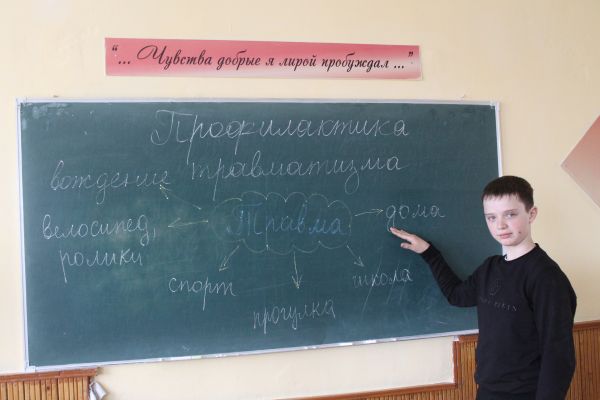 “... Чувства добрые я лирой пробуждал ...”
Профилактика
травматизма
вождение
Травма
дома
велосипед,
ролики
спорт
прогулка
школа